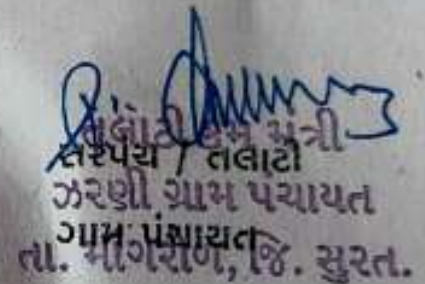 તલાટી કમ મંત્રી
સરપંચ / તલાટી
ઝરણી ગ્રામ પંચાયત
ગ્રામ પંચાયત
તા. માંગરોળ, જિ. સુરત.